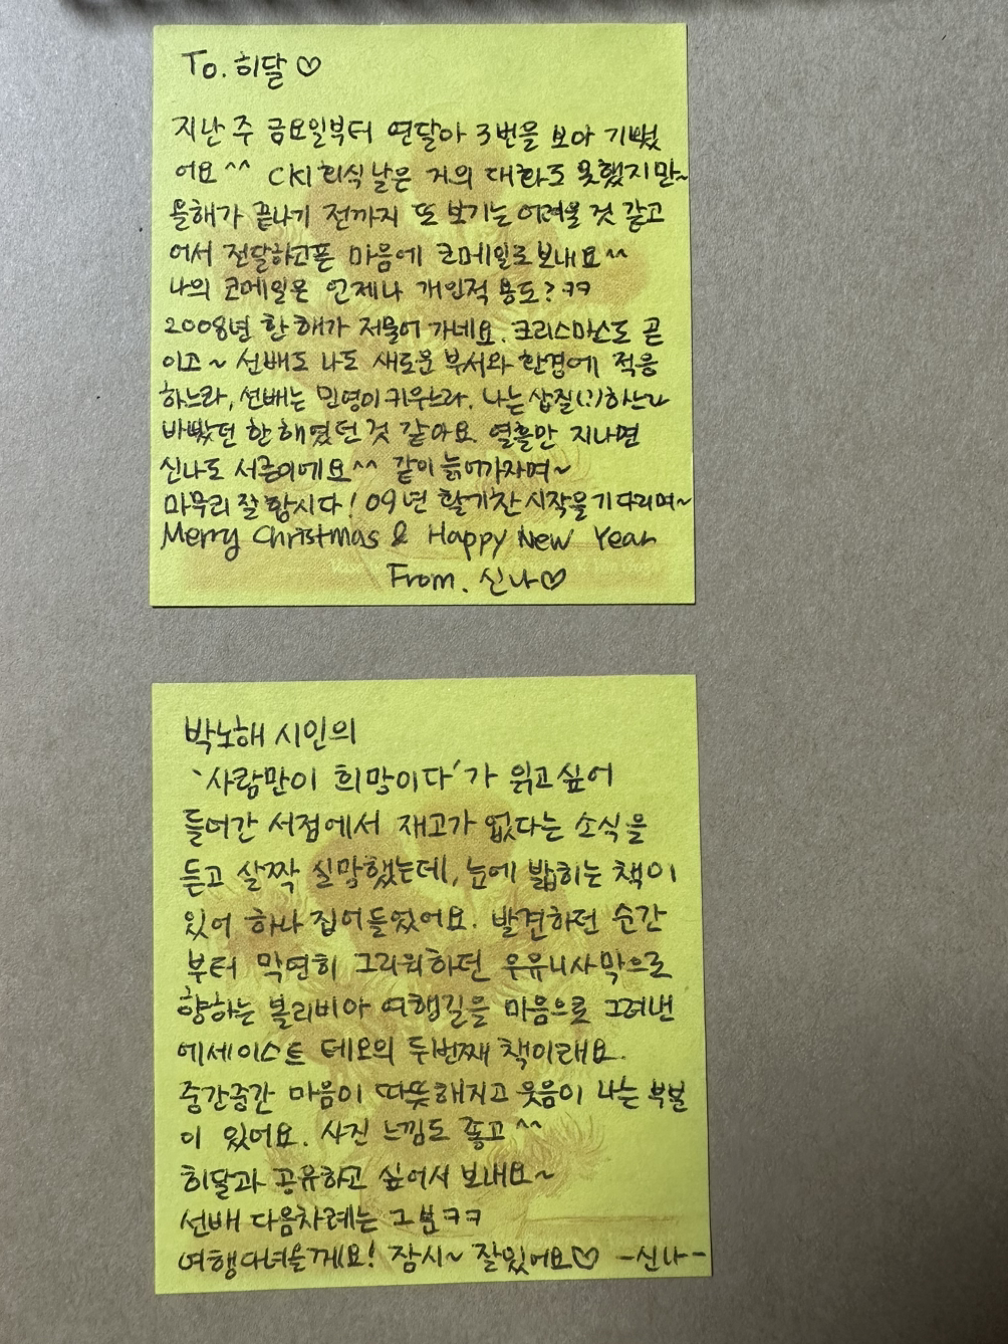 To. 히달♡
지난 주 금요일부터 연달아 3번을 보아 기뻤
어요^^ CKI 회식날은 거의 대화도 못했지만~
올해가 끝나기 전까지 또 보기는 어려울 것 같고
어서 전달하고픈 마음에 코메일로 보내요^^
나의 코메일은 언제나 개인적 용도?ㅋㅋ
2008년 한 해가 저물어 가네요. 크리스마스도 곧
이고~ 선배도 나도 새로운 부서와 환경에 적응
하느라, 선배는 민영이 키우느라. 나는 삽질(?)하느라
바빴던 한 해였던 것 같아요. 열흘만 지나면
신나도 서른이에요^^ 같이 늙어가자며~
마무리 잘 합시다! 09년 활기찬 시작을 기다리며~
Merry Christmas & Happy New Year
From. 신나♡
박노해 시인의
'사람만이 희망이다'가 읽고싶어
들어간 서점에서 재고가 없다는 소식을
듣고 살짝 실망했는데, 눈에 밟히는 책이
있어 하나 집어들었어요. 발견하던 순간
부터 막연히 그리워하던 우유니사막으로
향하는 볼리비아 여행길을 마음으로 그려낸
에세이스트 테오의 두번째 책이래요.
중간중간 마음이 따뜻해지고 웃음이 나는 부분
이 있어요. 사진 느낌도 좋고^^
히달과 공유하고 싶어서 보내요~
선배 다음차례는 그분ㅋㅋ
여행다녀올게요! 잠시~ 잘있어요♡ -신나-